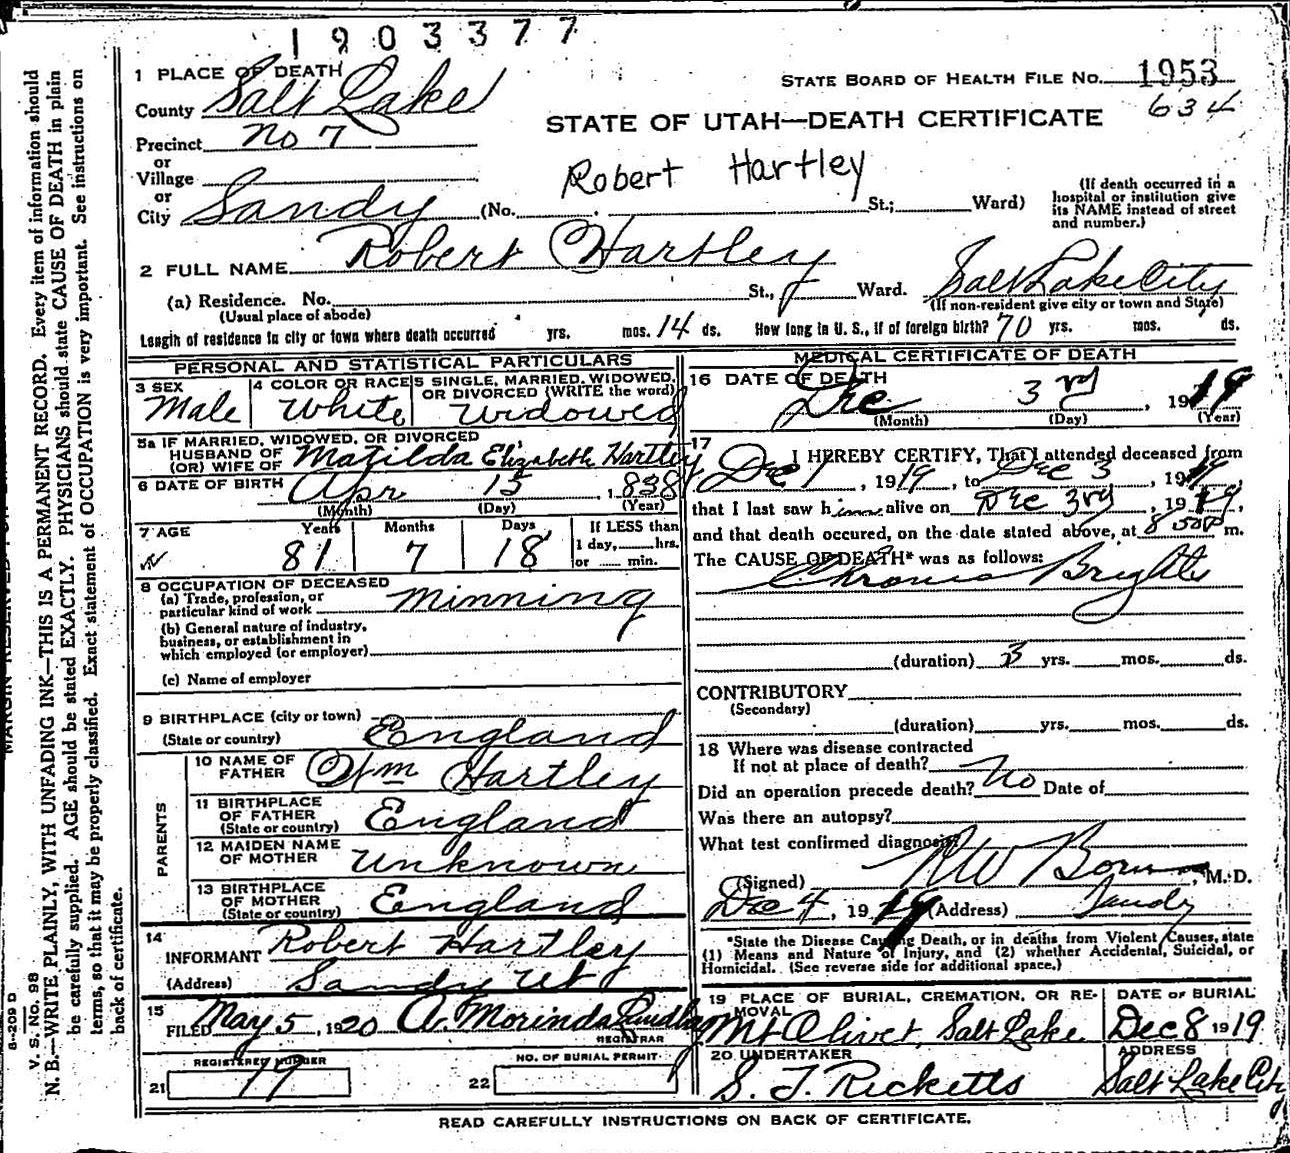 1903377
1 PLACE OF DEATH
STATE BOARD OF HEALTH FILE NO. 1953
County Salt Lake
634
STATE OF UTAH—DEATH CERTIFICATE
Precinct No 7
or
Village
Robert Hartley
or
City Sandy (No. St.; Ward)
(If death occurred in a
hospital or institution give
its NAME instead of street
and number.)
2 FULL NAME Robert Hartley
(a) Residence. No. St., Ward. Salt Lake City
(Usual place of abode)
(If non-resident give city or town and State)
Length of residence in city or town where death occurred yrs. mos. 14 ds. How long in U. S., if of foreign birth? 70 yrs. mos. ds.
PERSONAL AND STATISTICAL PARTICULARS
3 SEX
Male
4 COLOR OR RACE
White
5 SINGLE, MARRIED, WIDOWED,
OR DIVORCED (WRITE the word)
Widowed
5a IF MARRIED, WIDOWED, OR DIVORCED
HUSBAND OF
(OR) WIFE OF Matilda Elizabeth Hartley
6 DATE OF BIRTH Apr 15, 1838
(Month) (Day) (Year)
7 AGE
Years Months Days
81 7 18
If LESS than
1 day, hrs.
or min.
8 OCCUPATION OF DECEASED
(a) Trade, profession, or
particular kind of work Minning
(b) General nature of industry,
business, or establishment in
which employed (or employer)
(c) Name of employer
9 BIRTHPLACE (city or town)
(State or country) England
PARENTS
10 NAME OF
FATHER Wm Hartley
11 BIRTHPLACE
OF FATHER
(State or country) England
12 MAIDEN NAME
OF MOTHER Unknown
13 BIRTHPLACE
OF MOTHER
(State or country) England
14
INFORMANT Robert Hartley
(Address) Sandy Ut
15
FILED May 5, 1920 A. Morinda
REGISTRAR
REGISTERED NUMBER
21 79
NO. OF BURIAL PERMIT
22
MEDICAL CERTIFICATE OF DEATH
16 DATE OF DEATH
Dec 3rd, 1919
(Month) (Day) (Year)
17
I HEREBY CERTIFY, That I attended deceased from
Dec 1, 1919, to Dec 3, 1919,
that I last saw him alive on Dec 3rd, 1919,
and that death occured, on the date stated above, at m.
The CAUSE OF DEATH* was as follows:
Chronic Brights
(duration) 3 yrs. mos. ds.
CONTRIBUTORY
(Secondary)
(duration) yrs. mos. ds.
18 Where was disease contracted
If not at place of death?
Did an operation precede death? No Date of
Was there an autopsy?
What test confirmed diagnosis?
(Signed) M. D.
Dec 4, 1919 (Address) Sandy
*State the Disease Causing Death, or in deaths from Violent Causes, state
(1) Means and Nature of Injury, and (2) whether Accidental, Suicidal, or
Homicidal. (See reverse side for additional space.)
19 PLACE OF BURIAL, CREMATION, OR RE-
MOVAL
Mt Olivet, Salt Lake
DATE OF BURIAL
Dec 8 1919
20 UNDERTAKER
S. T. Ricketts
ADDRESS
Salt Lake City
READ CAREFULLY INSTRUCTIONS ON BACK OF CERTIFICATE.
MARGIN RESERVED
S-209 D
V. S. No. 98
N. B.—WRITE PLAINLY, WITH UNFADING INK—THIS IS A PERMANENT RECORD. Every item of information should
be carefully supplied. AGE should be stated EXACTLY. PHYSICIANS should state CAUSE OF DEATH in plain
terms, so that it may be properly classified. Exact statement of OCCUPATION is very important. See instructions on
back of certificate.